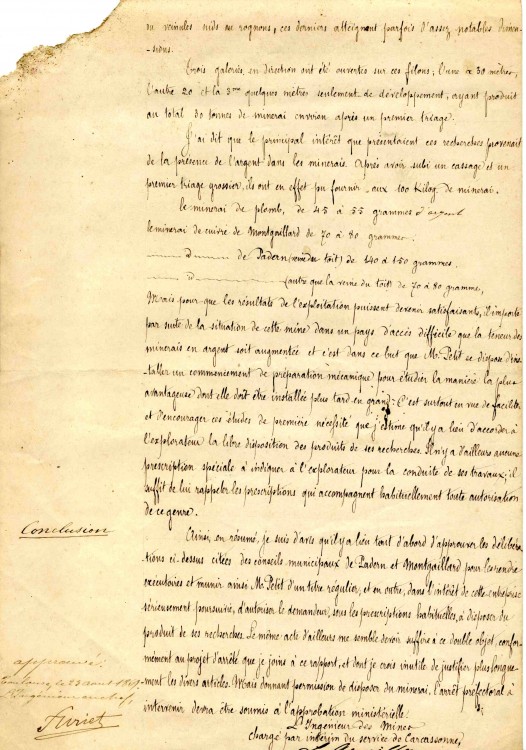 ou veinules nids ou rognons, ces derniers atteignent parfois d'assez notables dimen-
sions.
Trois galeries en direction ont été ouvertes sur ces filons; l'une a 30 mètres,
l'autre 20 et la 3me quelques mètres seulement de développement, ayant produit
au total 30 tonnes de minerai environ après un premier triage.
J'ai dit que le principal intérêt que présentaient ces recherches provenait
de la présence de l'argent dans les minerais. Après avoir subi un cassage et un
premier triage grossier, ils ont en effet pu fournir, aux 100 Kilog. de minerai.
le minerai de plomb, de 45 à 55 grammes d'argent
le minerai de cuivre de Montgaillard de 70 à 80 grammes.
D° de Padern (veine du toit) de 140 à 150 grammes.
D° (autre que la veine du toit) de 70 à 80 gramme,
Mais pour que les résultats de l'exploitation puissent devenir satisfaisants, il importe
par suite de la situation de cette mine dans un pays d'accès difficile que la teneur des
minerais en argent soit augmentée et c'est dans ce but que Mr. Petit se dispose d'ins-
taller un commencement de préparation mécanique pour étudier la manière la plus
avantageuse dont elle doit être installée plus tard en grand: C'est surtout en vue de faciliter
et d'encourager ces études de première nécessité que j'estime qu'il y a lieu d'accorder à
l'explorateur la libre disposition des produits de ses recherches. Il n'y a d'ailleurs aucune
prescription spéciale à indiquer à l'explorateur pour la conduite de ses travaux; il
suffit de lui rappeler les prescriptions qui accompagnent habituellement toute autorisation
de ce genre.
Conclusion
Ainsi, en résumé, je suis d'avis qu'il y a lieu tout d'abord d'approuver les délibéra-
tions ci-dessus citées des conseils municipaux de Padern et Montgaillard pour les rendre
exécutoires et munir ainsi Mr. Petit d'un titre régulier, et en outre, dans l'intérêt de cette entreprise
sérieusement poursuivie, d'autoriser le demandeur, sous les prescriptions habituelles, à disposer du
produit de ses recherches. Le même acte d'ailleurs me semble devoir suffire à ce double objet, confor-
mément au projet d'arrêté que je joins à ce rapport, et dont je crois inutile de justifier plus longue-
ment les divers articles. Mais donnant permission de disposer du minerai, l'arrêté préfectoral à
intervenir devra être soumis à l'approbation ministérielle.
L'Ingénieur des Mines
chargé par intérim du service de Carcassonne,
approuvé:
le 23 aout
l'Ingénieur en chef